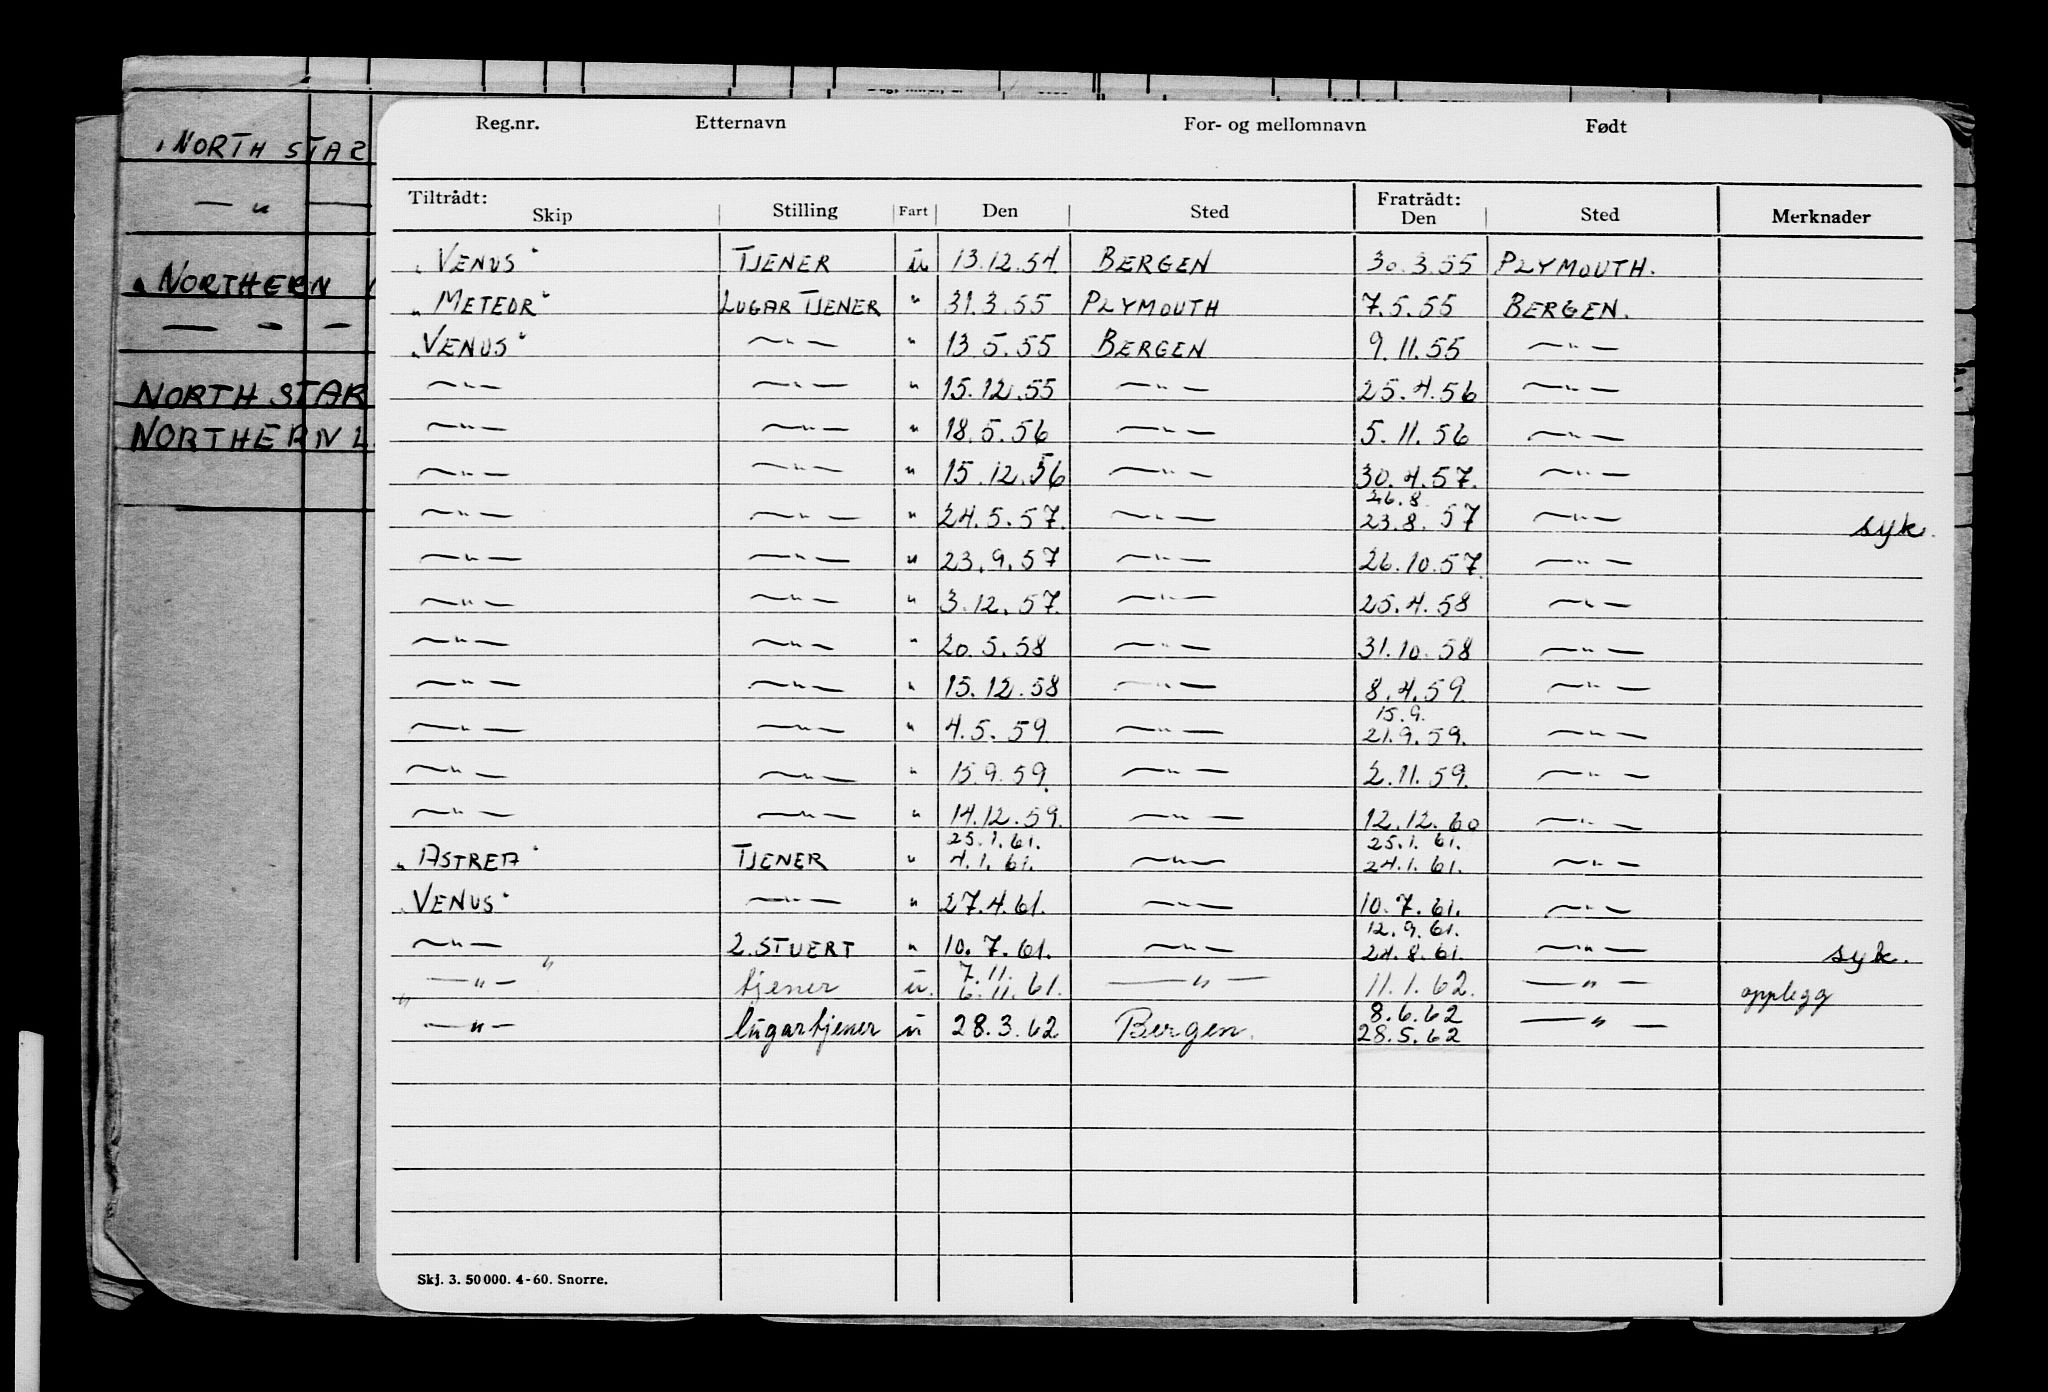 "NORTH STAR
— " —
"NORTHERN
— " —
NORTH STAR
NORTHERN L
Reg.nr. Etternavn For- og mellomnavn Født
Tiltrådt: Skip Stilling Fart Den Sted Fratrådt: Den Sted Merknader
"VENUS" TJENER u 13.12.54 BERGEN 30.3.55 PLYMOUTH.
"METEOR" LUGARTJENER " 31.3.55 PLYMOUTH 7.5.55 BERGEN.
"VENUS" — " — " 13.5.55 BERGEN 9.11.55 — " —
— " — — " — " 15.12.55 — " — 25.4.56 — " —
— " — — " — " 18.5.56 — " — 5.11.56 — " —
— " — — " — " 15.12.56 — " — 30.4.57. — " —
26.8
— " — — " — " 24.5.57. — " — 23.8.57 — " — syk.
— " — — " — " 23.9.57 — " — 26.10.57. — " —
— " — — " — " 3.12.57. — " — 25.4.58 — " —
— " — — " — " 20.5.58 — " — 31.10.58 — " —
— " — — " — " 15.12.58 — " — 8.4.59. — " —
15.9.
— " — — " — " 4.5.59 — " — 21.9.59. — " —
— " — — " — " 15.9.59. — " — 2.11.59. — " —
— " — — " — " 14.12.59. — " — 12.12.60 — " —
25.1.61. 25.1.61.
"ASTREA" TJENER " 4.1.61. — " — 24.1.61. — " —
"VENUS" — " — " 27.4.61. — " — 10.7.61. — " —
12.9.61.
— " — 2.STUERT " 10.7.61. — " — 24.8.61. — " — syk.
7.11.
" — " — " tjener u. 6.11.61. — " — 11.1.62. — " — opplegg
8.6.62
— " — lugartjener u 28.3.62 Bergen. 28.5.62 — " —
Skj. 3. 50 000. 4-60. Snorre.